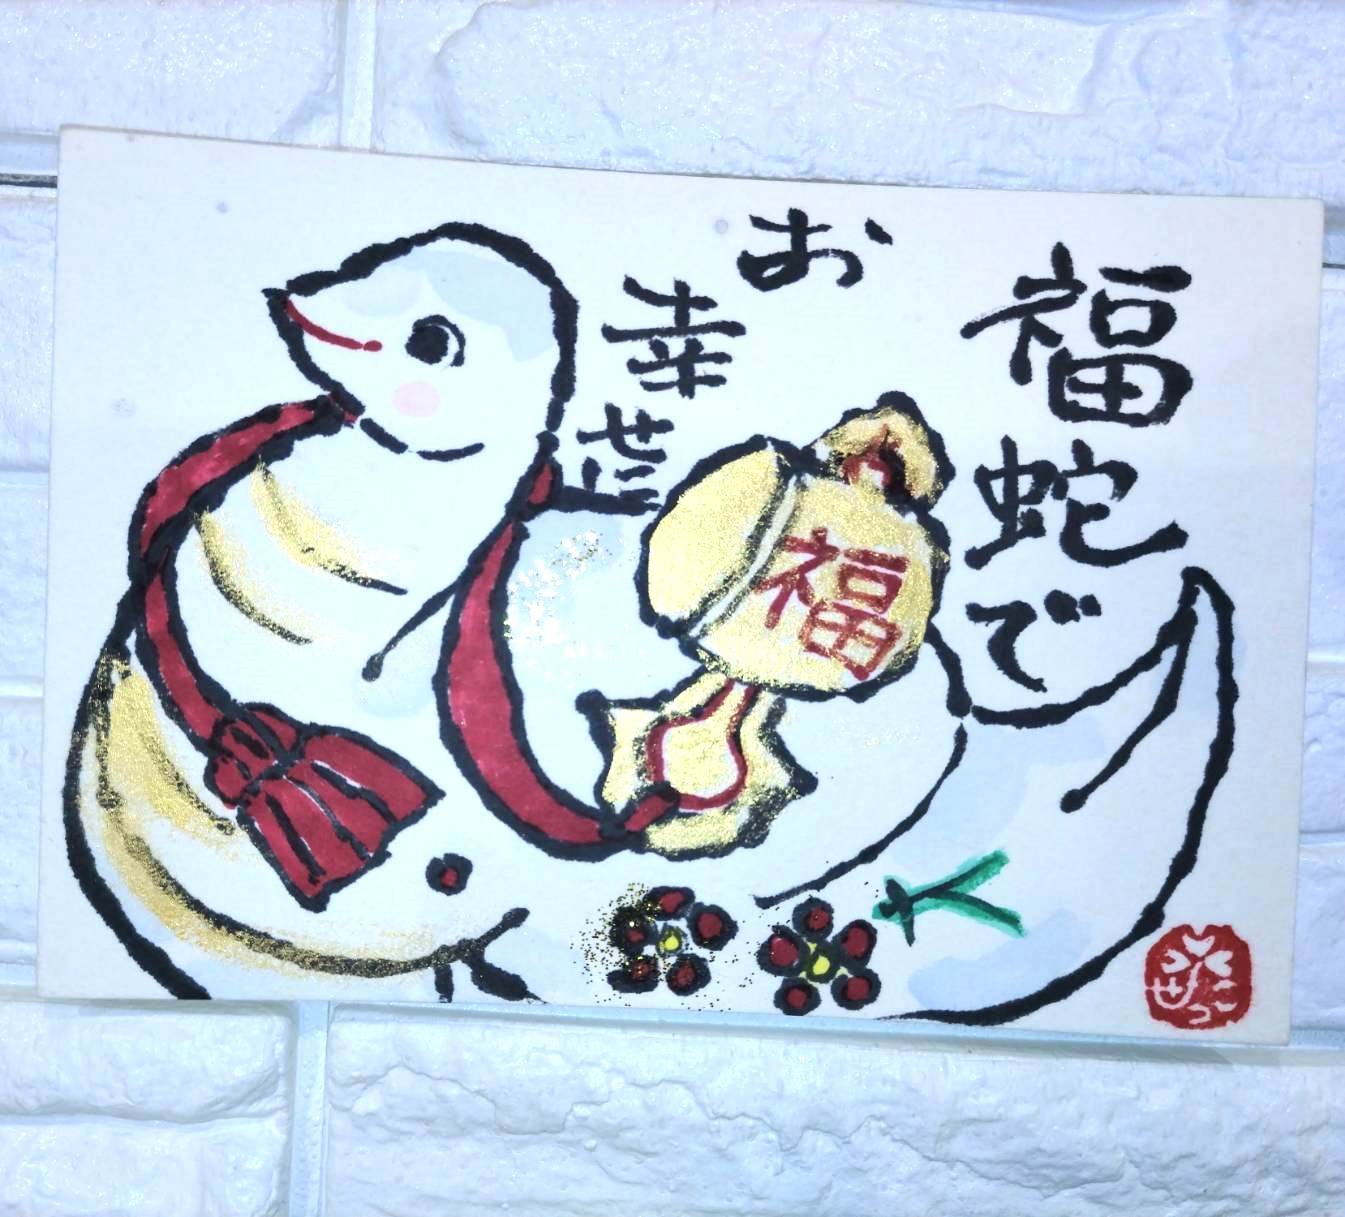 福蛇で
お
幸せに
福
せつこ